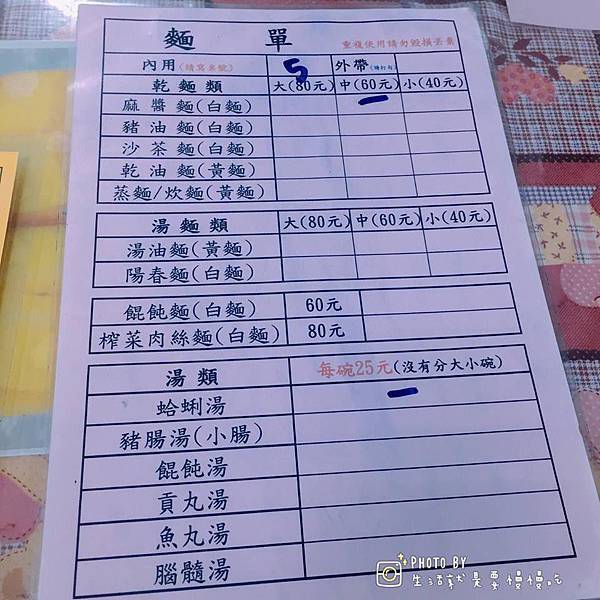 麵 單
重複使用請勿毀損丟棄
內用(請寫桌號) 5 外帶(請打勾)
乾麵類 大(80元) 中(60元) 小(40元)
麻醬麵(白麵)
豬油麵(白麵)
沙茶麵(白麵)
乾油麵(黃麵)
蒸麵/炊麵(黃麵)
湯麵類 大(80元) 中(60元) 小(40元)
湯油麵(黃麵)
陽春麵(白麵)
餛飩麵(白麵) 60元
榨菜肉絲麵(白麵) 80元
湯類 每碗25元(沒有分大小碗)
蛤蜊湯
豬腸湯(小腸)
餛飩湯
貢丸湯
魚丸湯
腦髓湯
PHOTO BY
生活就是要慢慢吃